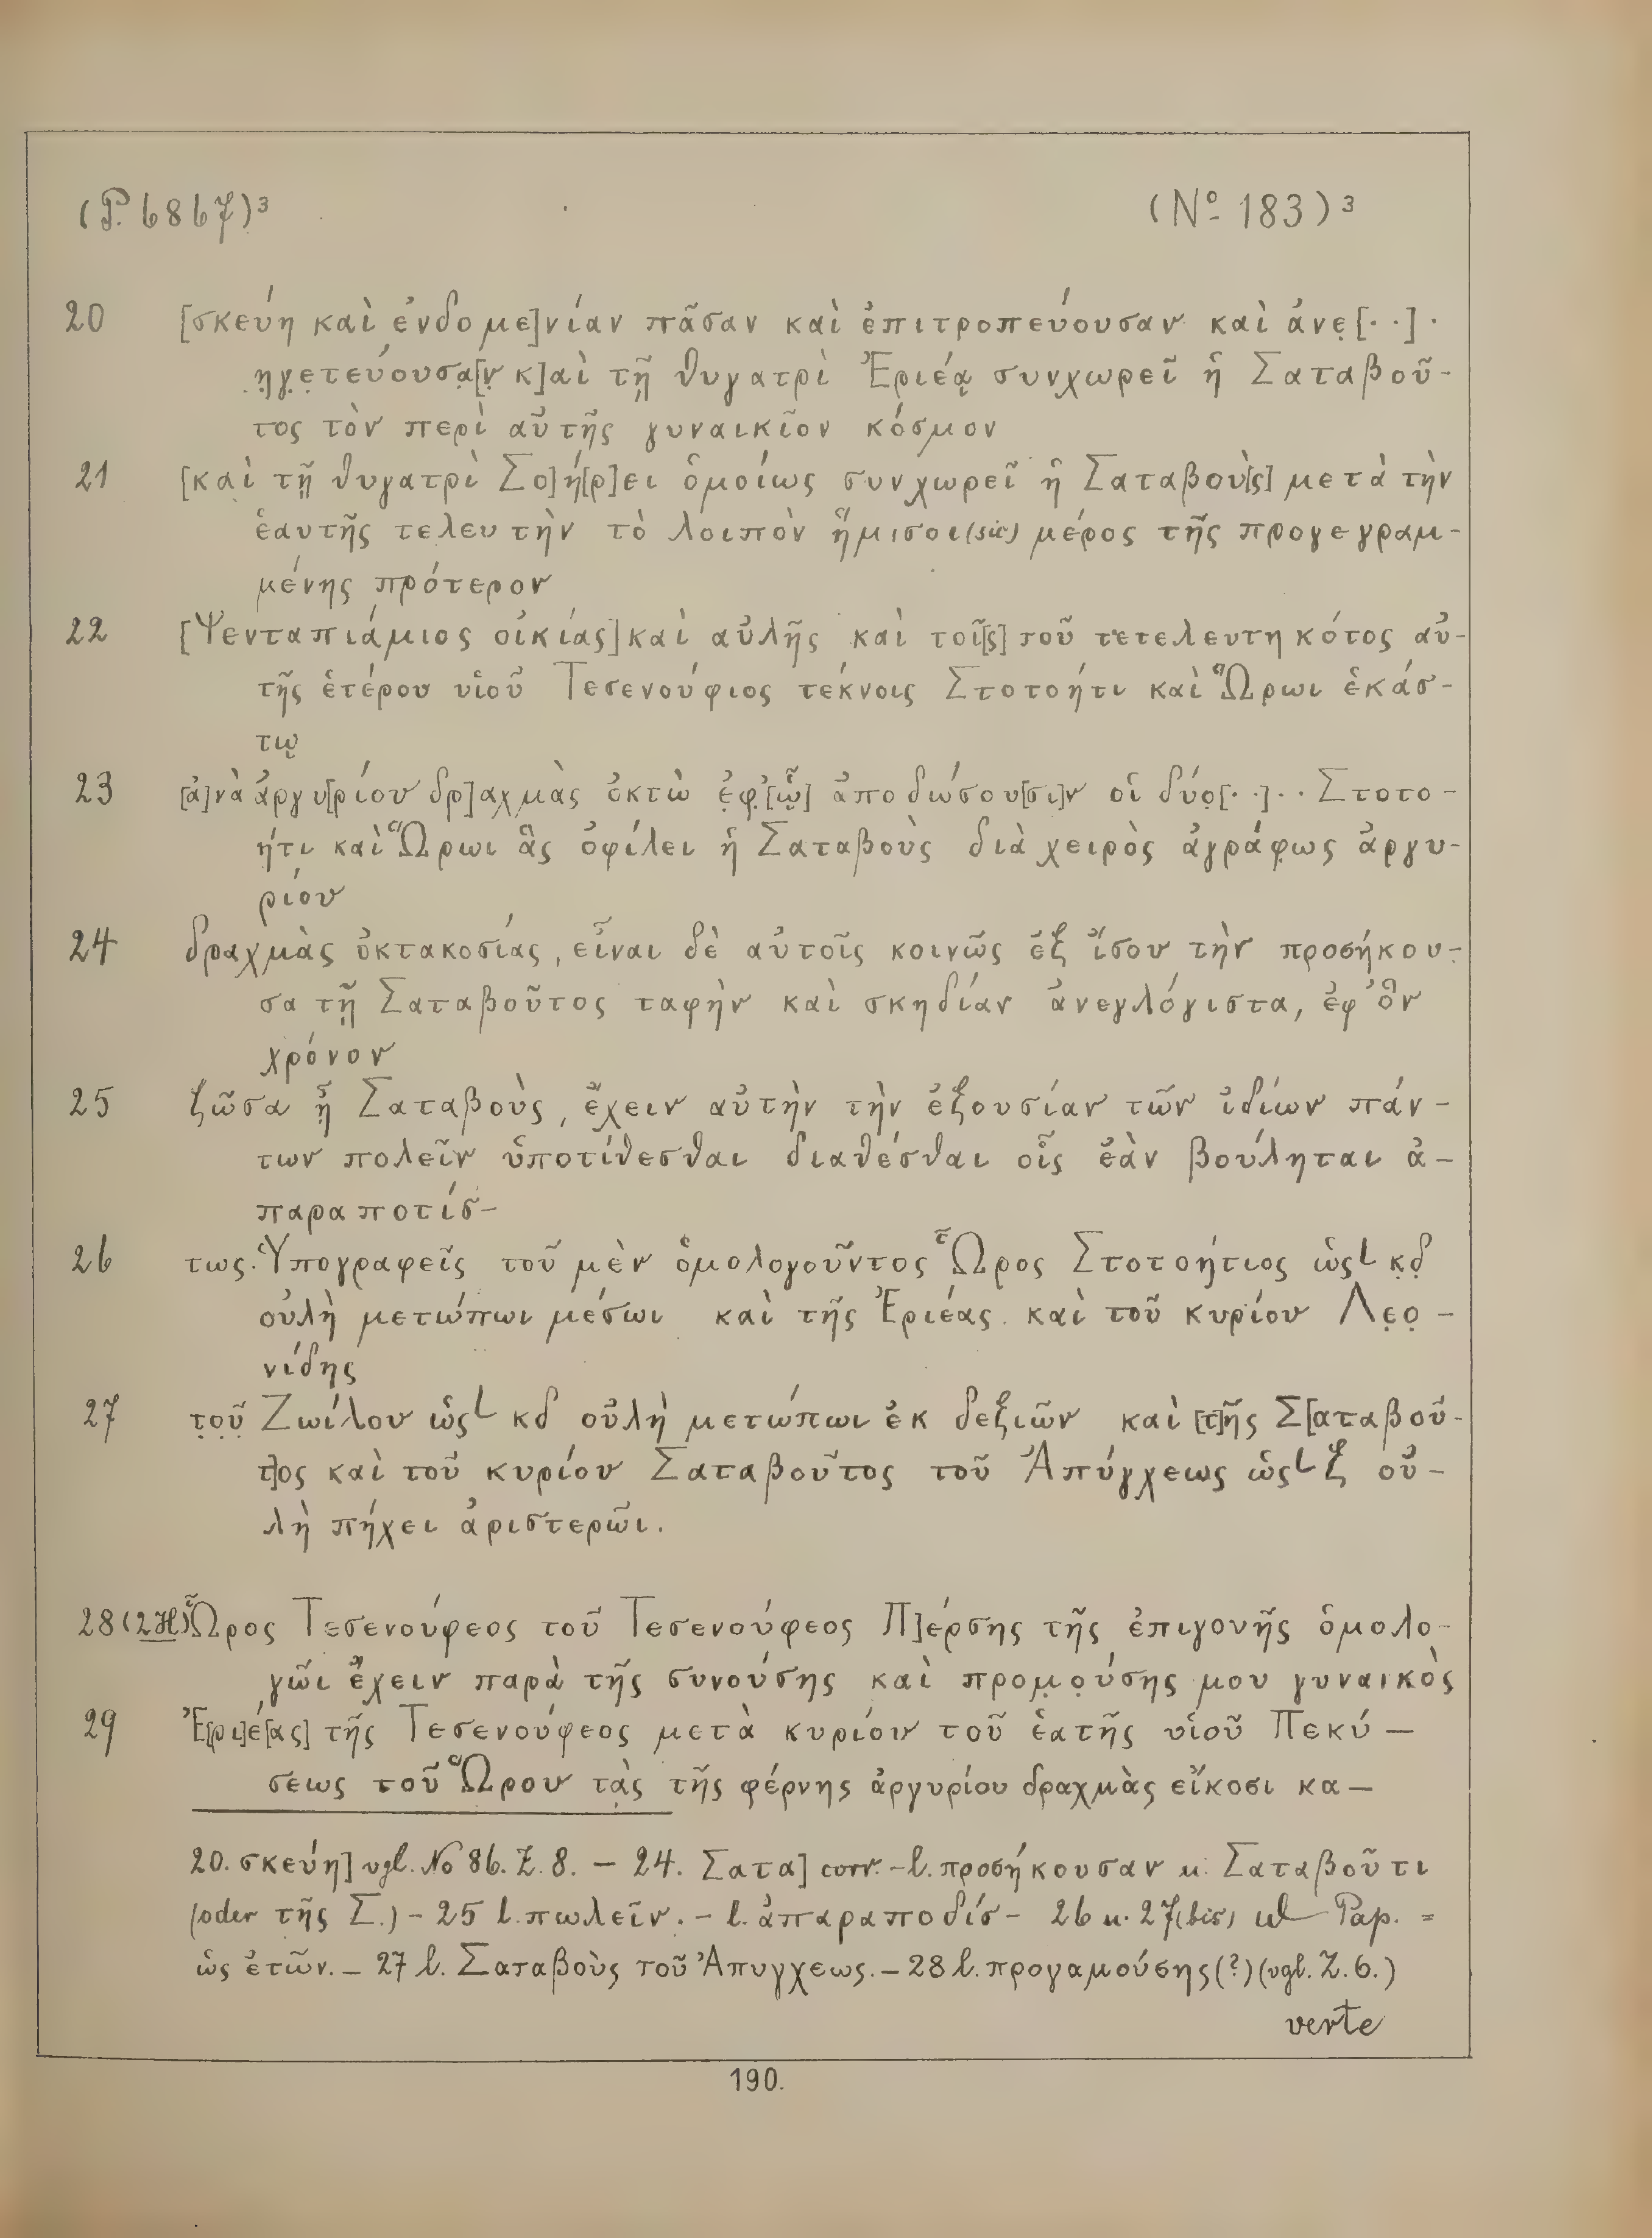 (P. 6867)³ (Nº 183)³
20 [σκεύη καὶ ἐνδομε]νίαν πᾶσαν καὶ ἐπιτροπεύουσαν καὶ ἀνε̣[· ·] ·
η̣γ̣ε̣τεύουσα̣[ν̣ κ]αὶ τῇ θυγατρὶ Ἐριέᾳ συνχωρεῖ ἡ Σαταβοῦ-
τος τὸν περὶ αὐτῆς γυναικῖον κόσμον
21 [καὶ τῇ θυγατρὶ Σο]ή[ρ]ει ὁμοίως συνχωρεῖ ἡ Σαταβοὺ[ς] μετὰ τὴν
ἑαυτῆς τελευτὴν τὸ λοιπὸν ἥμισοι(sic) μέρος τῆς προγεγραμ-
μένης πρότερον
22 [Ψενταπιάμιος οἰκίας] καὶ αὐλῆς καὶ τοῖ[ς] τοῦ τετελευτηκότος αὐ-
τῆς ἑτέρου υἱοῦ Τεσενούφιος τέκνοις Στοτοήτι καὶ Ὥρωι ἑκάσ-
τῳ
23 [ἀ]νὰ ἀργυ[ρίου δρ]αχμὰς ὀκτὼ ἐ̣φ̣[ᾧ] ἀποδώσου[σι]ν οἱ δύο̣[· ·] · · Στοτο-
ήτι καὶ Ὥρωι ἃς ὀφίλει ἡ Σαταβοὺς διὰ χειρὸς ἀγράφως ἀργυ-
ρίου
24 δραχμὰς ὀκτακοσίας, εἶναι δὲ αὐτοῖς κοινῶς ἐξ ἴσου τὴν προσήκου-
σα τῇ Σαταβοῦτος ταφὴν καὶ σκηδίαν ἀνεγλόγιστα, ἐφ' ὃν
χρόνον
25 ζῶσα ᾖ Σαταβοὺς, ἔχειν αὐτὴν τὴν ἐξουσίαν τῶν ἰδίων πάν-
των πολεῖν ὑποτίθεσθαι διαθέσθαι οἷς ἐὰν βούληται ἀ-
παραποτίσ-
26 τως. Ὑπογραφεῖς τοῦ μὲν ὁμολογοῦντος Ὧρος Στοτοήτιος ὡς L κ̣δ̣
οὐλὴ μετώπωι μέσωι καὶ τῆς Ἐριέας καὶ τοῦ κυρίου Λε̣ο̣-
νίδης
27 τ̣ο̣ῦ̣ Ζωίλου ὡς L κδ οὐλὴ μετώπωι ἐκ δεξιῶν καὶ [τ]ῆς Σ[αταβοῦ-
τ]ος καὶ τοῦ κυρίου Σαταβοῦτος τοῦ Ἀπύγχεως ὡς L ξ οὐ-
λὴ πήχει ἀριστερῶι.
28 (2H) Ὧρος Τεσενούφεος τοῦ Τεσενούφεος Π]έρσης τῆς ἐπιγονῆς ὁμολο-
γῶι ἔχειν παρὰ τῆς συνούσης καὶ προμ̣ο̣ύσης μου γυναικὸς
29 Ἐ[ρι]έ[ας] τῆς Τεσενούφεος μετὰ κυρίου τοῦ ἑατῆς υἱοῦ Πεκύ-
σεως τοῦ Ὥρου τὰς τῆς φέρνης ἀργυρίου δραχμὰς εἴκοσι κα-
20. σκεύη] vgl. No 86. Z. 8. – 24. Σατα] corr. – l. προσήκουσαν u. Σαταβοῦτι
(oder τῆς Σ.) – 25 l. πωλεῖν. – l. ἀπαραποδίσ- 26 u. 27 (bis) ωL Pap. =
ὡς ἐτῶν. – 27 l. Σαταβοὺς τοῦ Ἀπυγχεως. – 28 l. προγαμούσης (?) (vgl. Z. 6.)
verte
190.